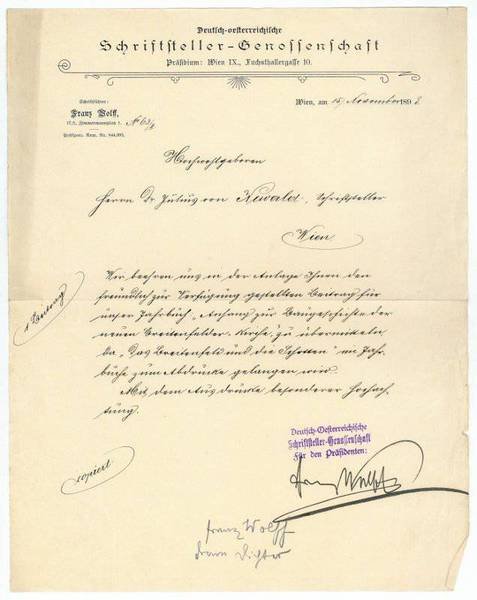 Deutsch-oesterreichische
Schriftsteller-Genossenschaft
Präsidium: Wien IX., Fuchsthallergasse 10.
Schriftführer:
Franz Wolff,
Zimmermannplatz 1.
Wien, am 15. November 1898.
Hochwohlgeboren
Herrn Dr. Julius von Newald, Schriftsteller
Wien
Wir beehren uns in der Anlage Ihnen den
freundlich zur Verfügung gestellten Beitrag für
unser Jahrbuch „Anhang zur Baugeschichte der
neuen Breitenfelder-Kirche“, zu übermitteln
da „Das Breitenfeld und die Schotten“ im Jahr-
buche zum Abdrucke gelangen wird.
Mit dem Ausdrucke besonderer Hochach-
tung.
1 Beitrag
copiert
Deutsch-Oesterreichische
Schriftsteller-Genossenschaft
Für den Präsidenten:
Franz Wolff
Franz Wolff
Dichter